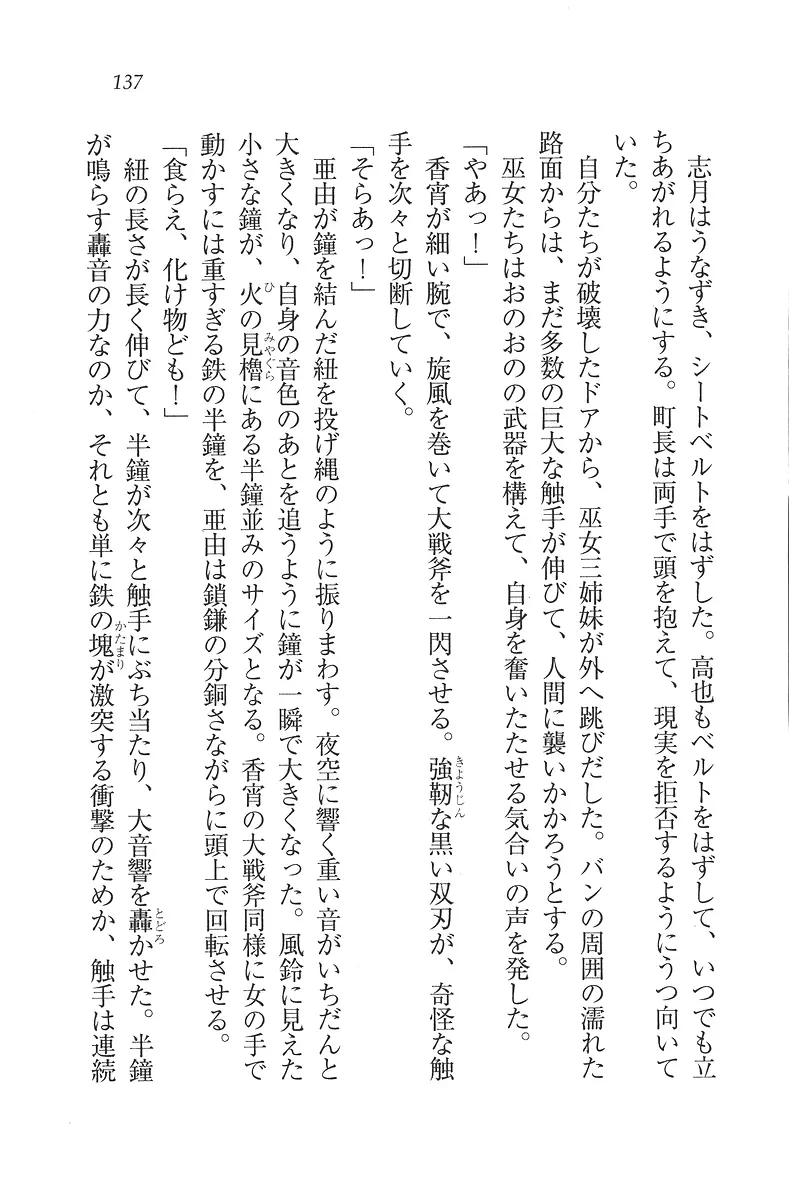 137
志月はうなずき、シートベルトをはずした。高也もベルトをはずして、いつでも立
ちあがれるようにする。町長は両手で頭を抱えて、現実を拒否するようにうつ向いて
いた。
自分たちが破壊したドアから、巫女三姉妹が外へ跳びだした。バンの周囲の濡れた
路面からは、まだ多数の巨大な触手が伸びて、人間に襲いかかろうとする。
巫女たちはおのおのの武器を構えて、自身を奮いたたせる気合いの声を発した。
「やあっ！」
香宵が細い腕で、旋風を巻いて大戦斧を一閃させる。強靭な黒い双刃が、奇怪な触
手を次々と切断していく。
「そらあっ！」
亜由が鐘を結んだ紐を投げ縄のように振りまわす。夜空に響く重い音がいちだんと
大きくなり、自身の音色のあとを追うように鐘が一瞬で大きくなった。風鈴に見えた
小さな鐘が、火の見櫓にある半鐘並みのサイズとなる。香宵の大戦斧同様に女の手で
動かすには重すぎる鉄の半鐘を、亜由は鎖鎌の分銅さながらに頭上で回転させる。
「食らえ、化け物ども！」
紐の長さが長く伸びて、半鐘が次々と触手にぶち当たり、大音響を轟かせた。半鐘
が鳴らす轟音の力なのか、それとも単に鉄の塊が激突する衝撃のためか、触手は連続